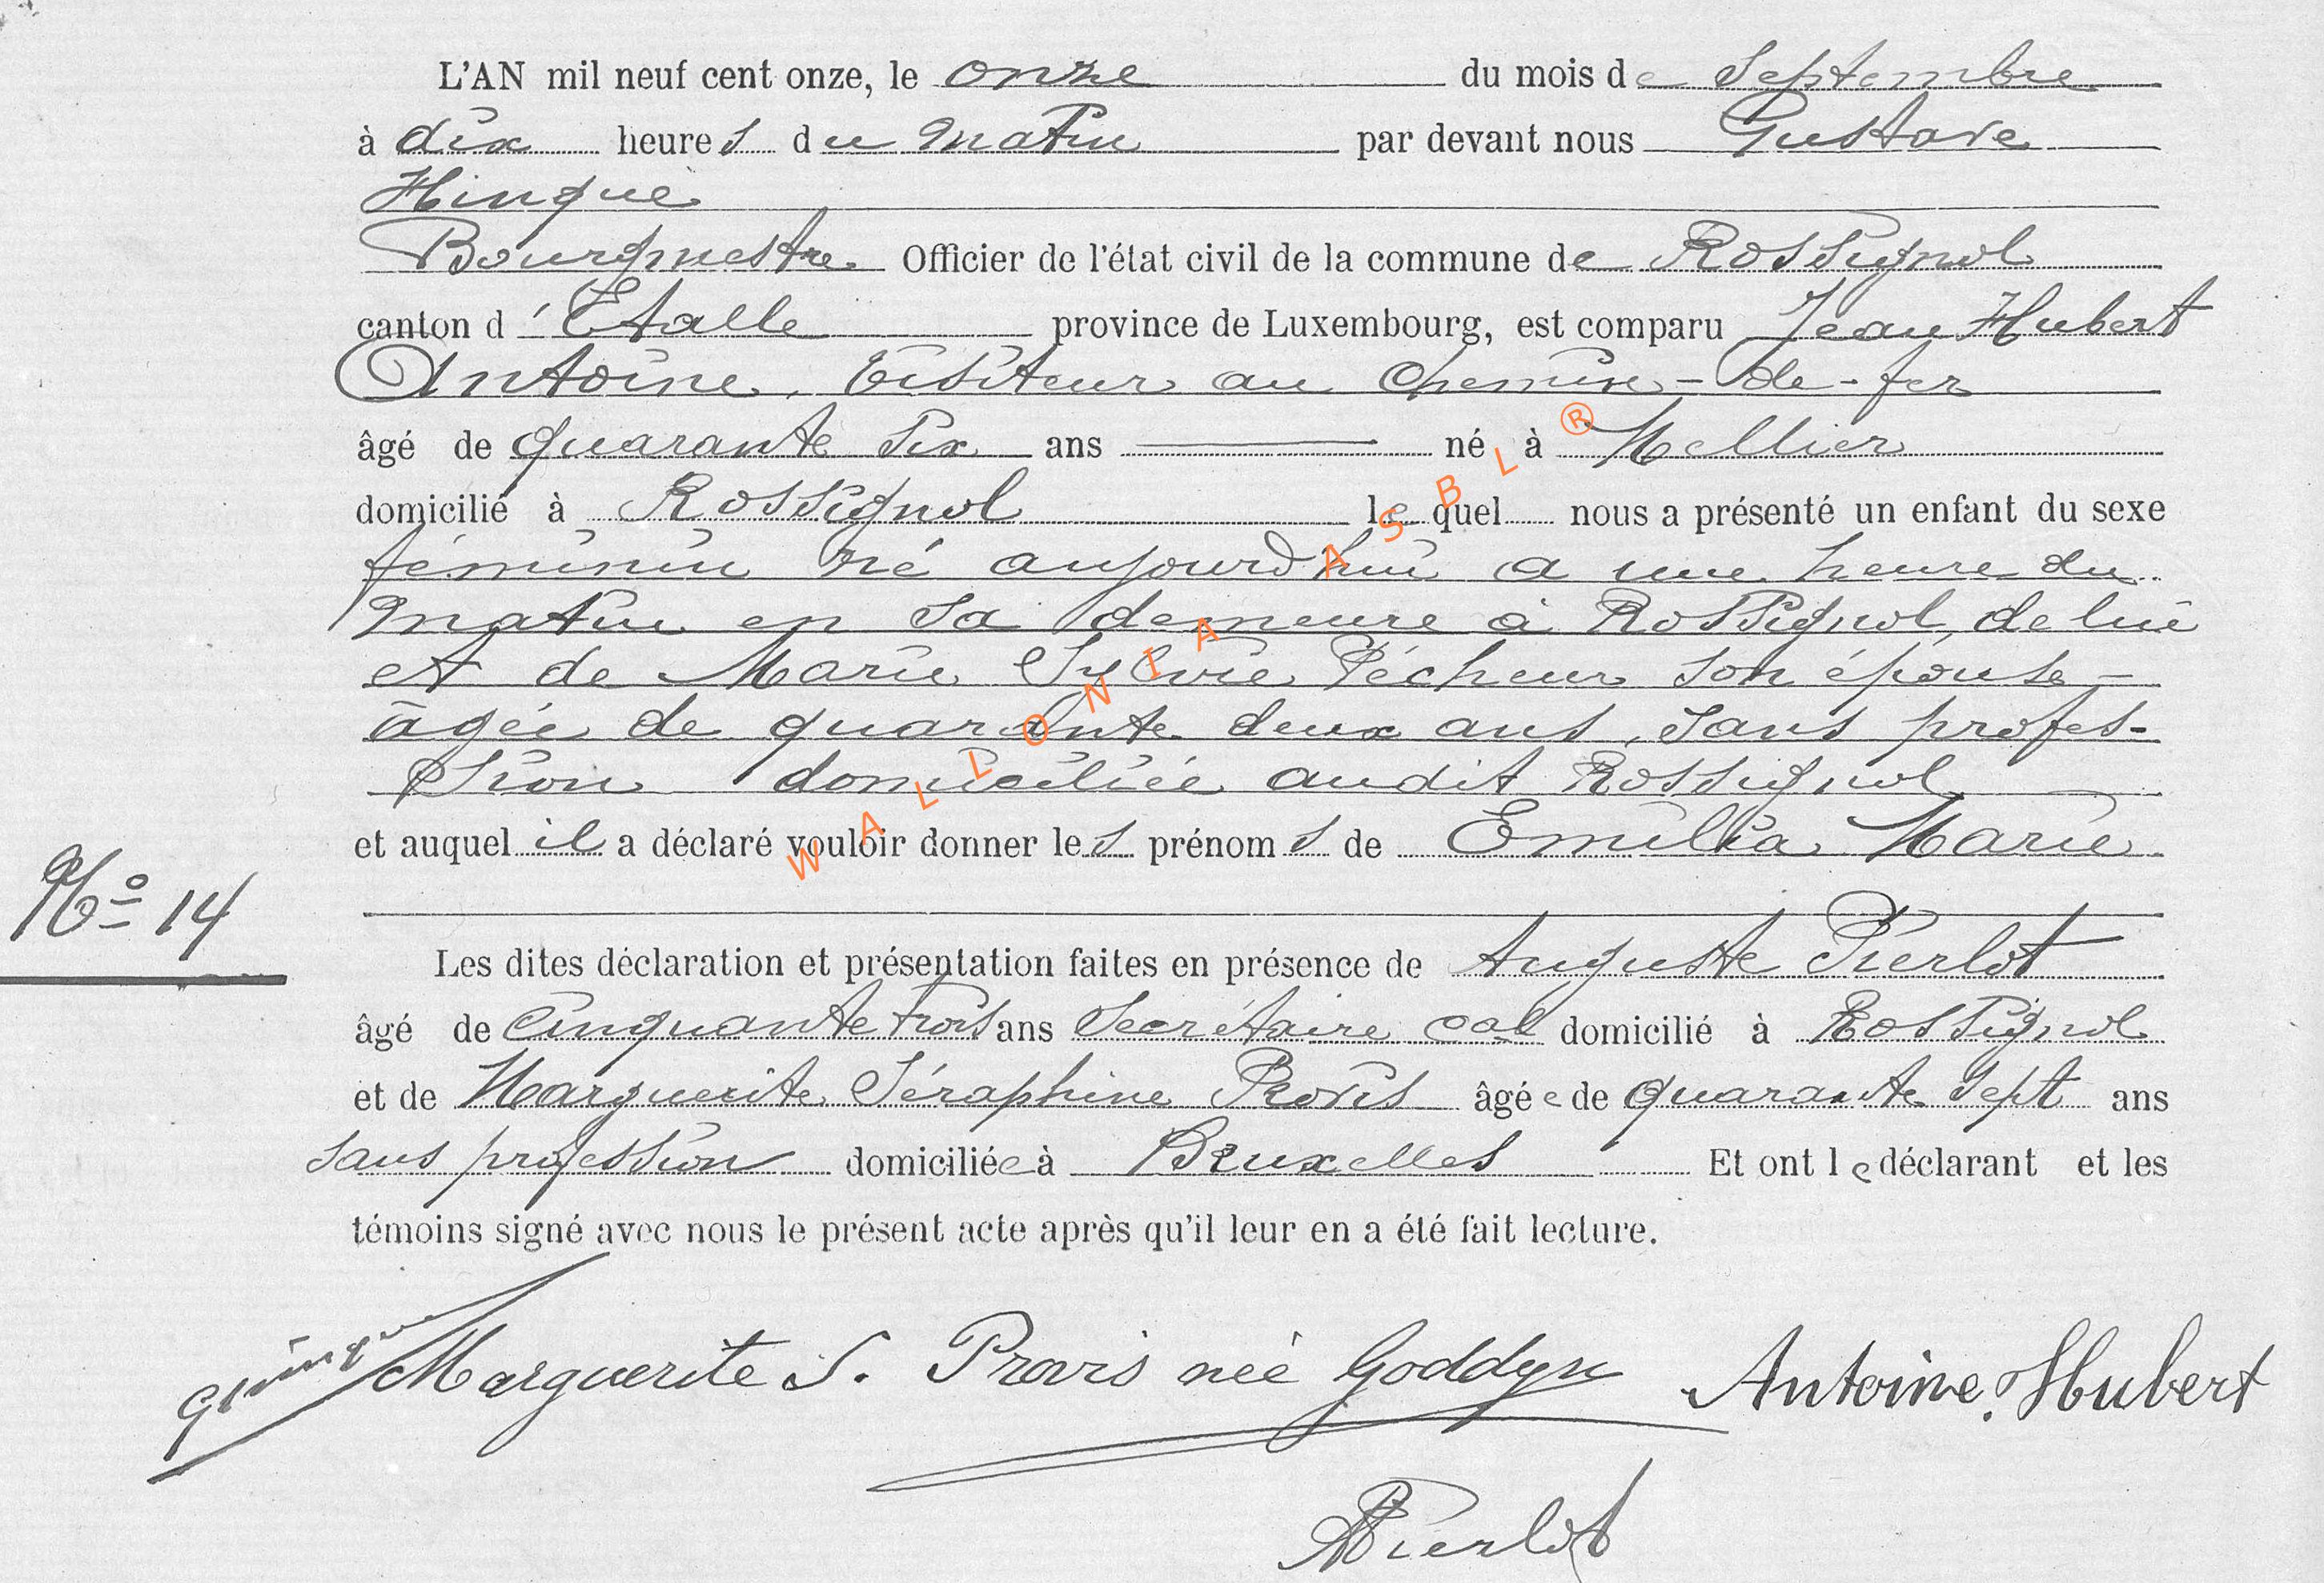 L'AN mil neuf cent onze, le onze du mois de Septembre
à dix heures du matin par devant nous Gustave
Hinque
Bourgmestre Officier de l'état civil de la commune de Rossignol
canton d'Etalle province de Luxembourg, est comparu Jean Hubert
Antoine, visiteur au chemin-de-fer
âgé de quarante six ans né à Mellier
domicilié à Rossignol lequel nous a présenté un enfant du sexe
féminin né aujourd'hui a une heure du
matin en sa demeure à Rossignol, de lui
et de Marie Sylvie Pécheur son épouse
âgée de quarante deux ans, sans profes-
sion domiciliée audit Rossignol
et auquel il a déclaré vouloir donner les prénoms de Emilia Marie
No 14
Les dites déclaration et présentation faites en présence de Auguste Pierlot
âgé de cinquante trois ans Secrétaire cal domicilié à Rossignol
et de Marguerite Séraphine Provis âgée de quarante sept ans
sans profession domiciliée à Bruxelles Et ont le déclarant et les
témoins signé avec nous le présent acte après qu'il leur en a été fait lecture.
GHinque Marguerite S. Provis née Goddyn Antoine. Hubert
APierlot
WALLONIA ASBL ®